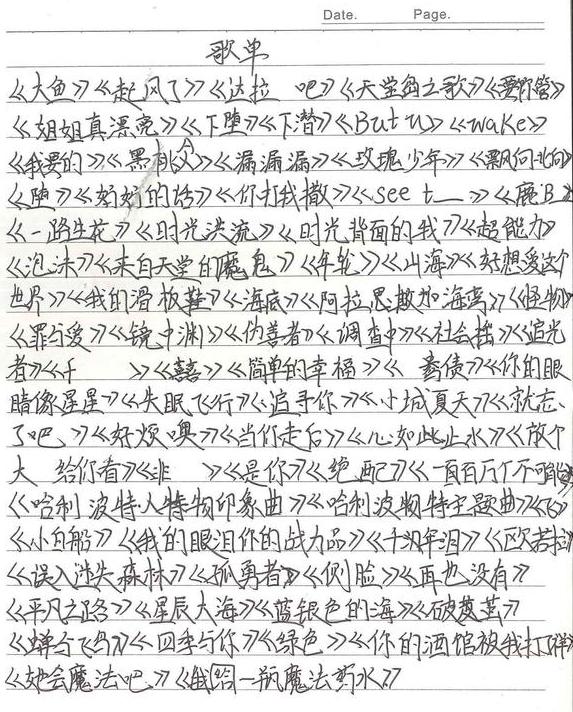 Date. Page.
歌单
《大鱼》《起风了》《达拉 吧》《天堂岛之歌》《要你管》
《姐姐真漂亮》《下堕》《下潜》《But U》《wake》
《我要的》《黑桃A》《漏漏漏》《玫瑰少年》《飘向北向
《堕》《好好的话》《你打我撒》《see t_》《鹿B_》
《一路生花》《时光洪流》《时光背面的我》《超能力》
《泡沫》《来自天堂的魔鬼》《年轮》《山海》《好想爱这个
世界》《我的滑板鞋》《海底》《阿拉思敏加海湾》《怪物》
《罪与爱》《镜中渊》《伪善者》《调查中》《社会摇》《追光
者》《千 》《囍》《简单的幸福》《 债》《你的眼
睛像星星》《失眠飞行》《追寻你》《小城夏天》《就忘
了吧》《好烦噢》《当你走后》《心如此止水》《放个
大 给你看》《非 》《是你》《绝配》《一百百万个不可能》
《哈利波特人特物印象曲》《哈利波物特主题曲》《60》
《小白船》《我的眼泪你的战力品》《千次年泪》《欧若拉》
《误入迷失森林》《孤勇者》《侧脸》《再也没有》
《平凡之路》《星辰大海》《蓝银色的海》《破茧》
《蝉与飞鸟》《四季与你》《绿色》《你的酒馆被我打烊》
《她会魔法吧》《我给一瓶魔法药水》